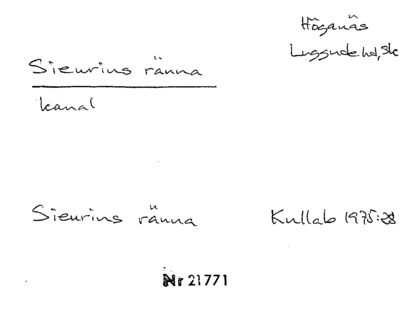 Höganäs
Luggude hd, Sk
Sieurins ränna
kanal
Sieurins ränna Kullab 1975:28
Nr 21771